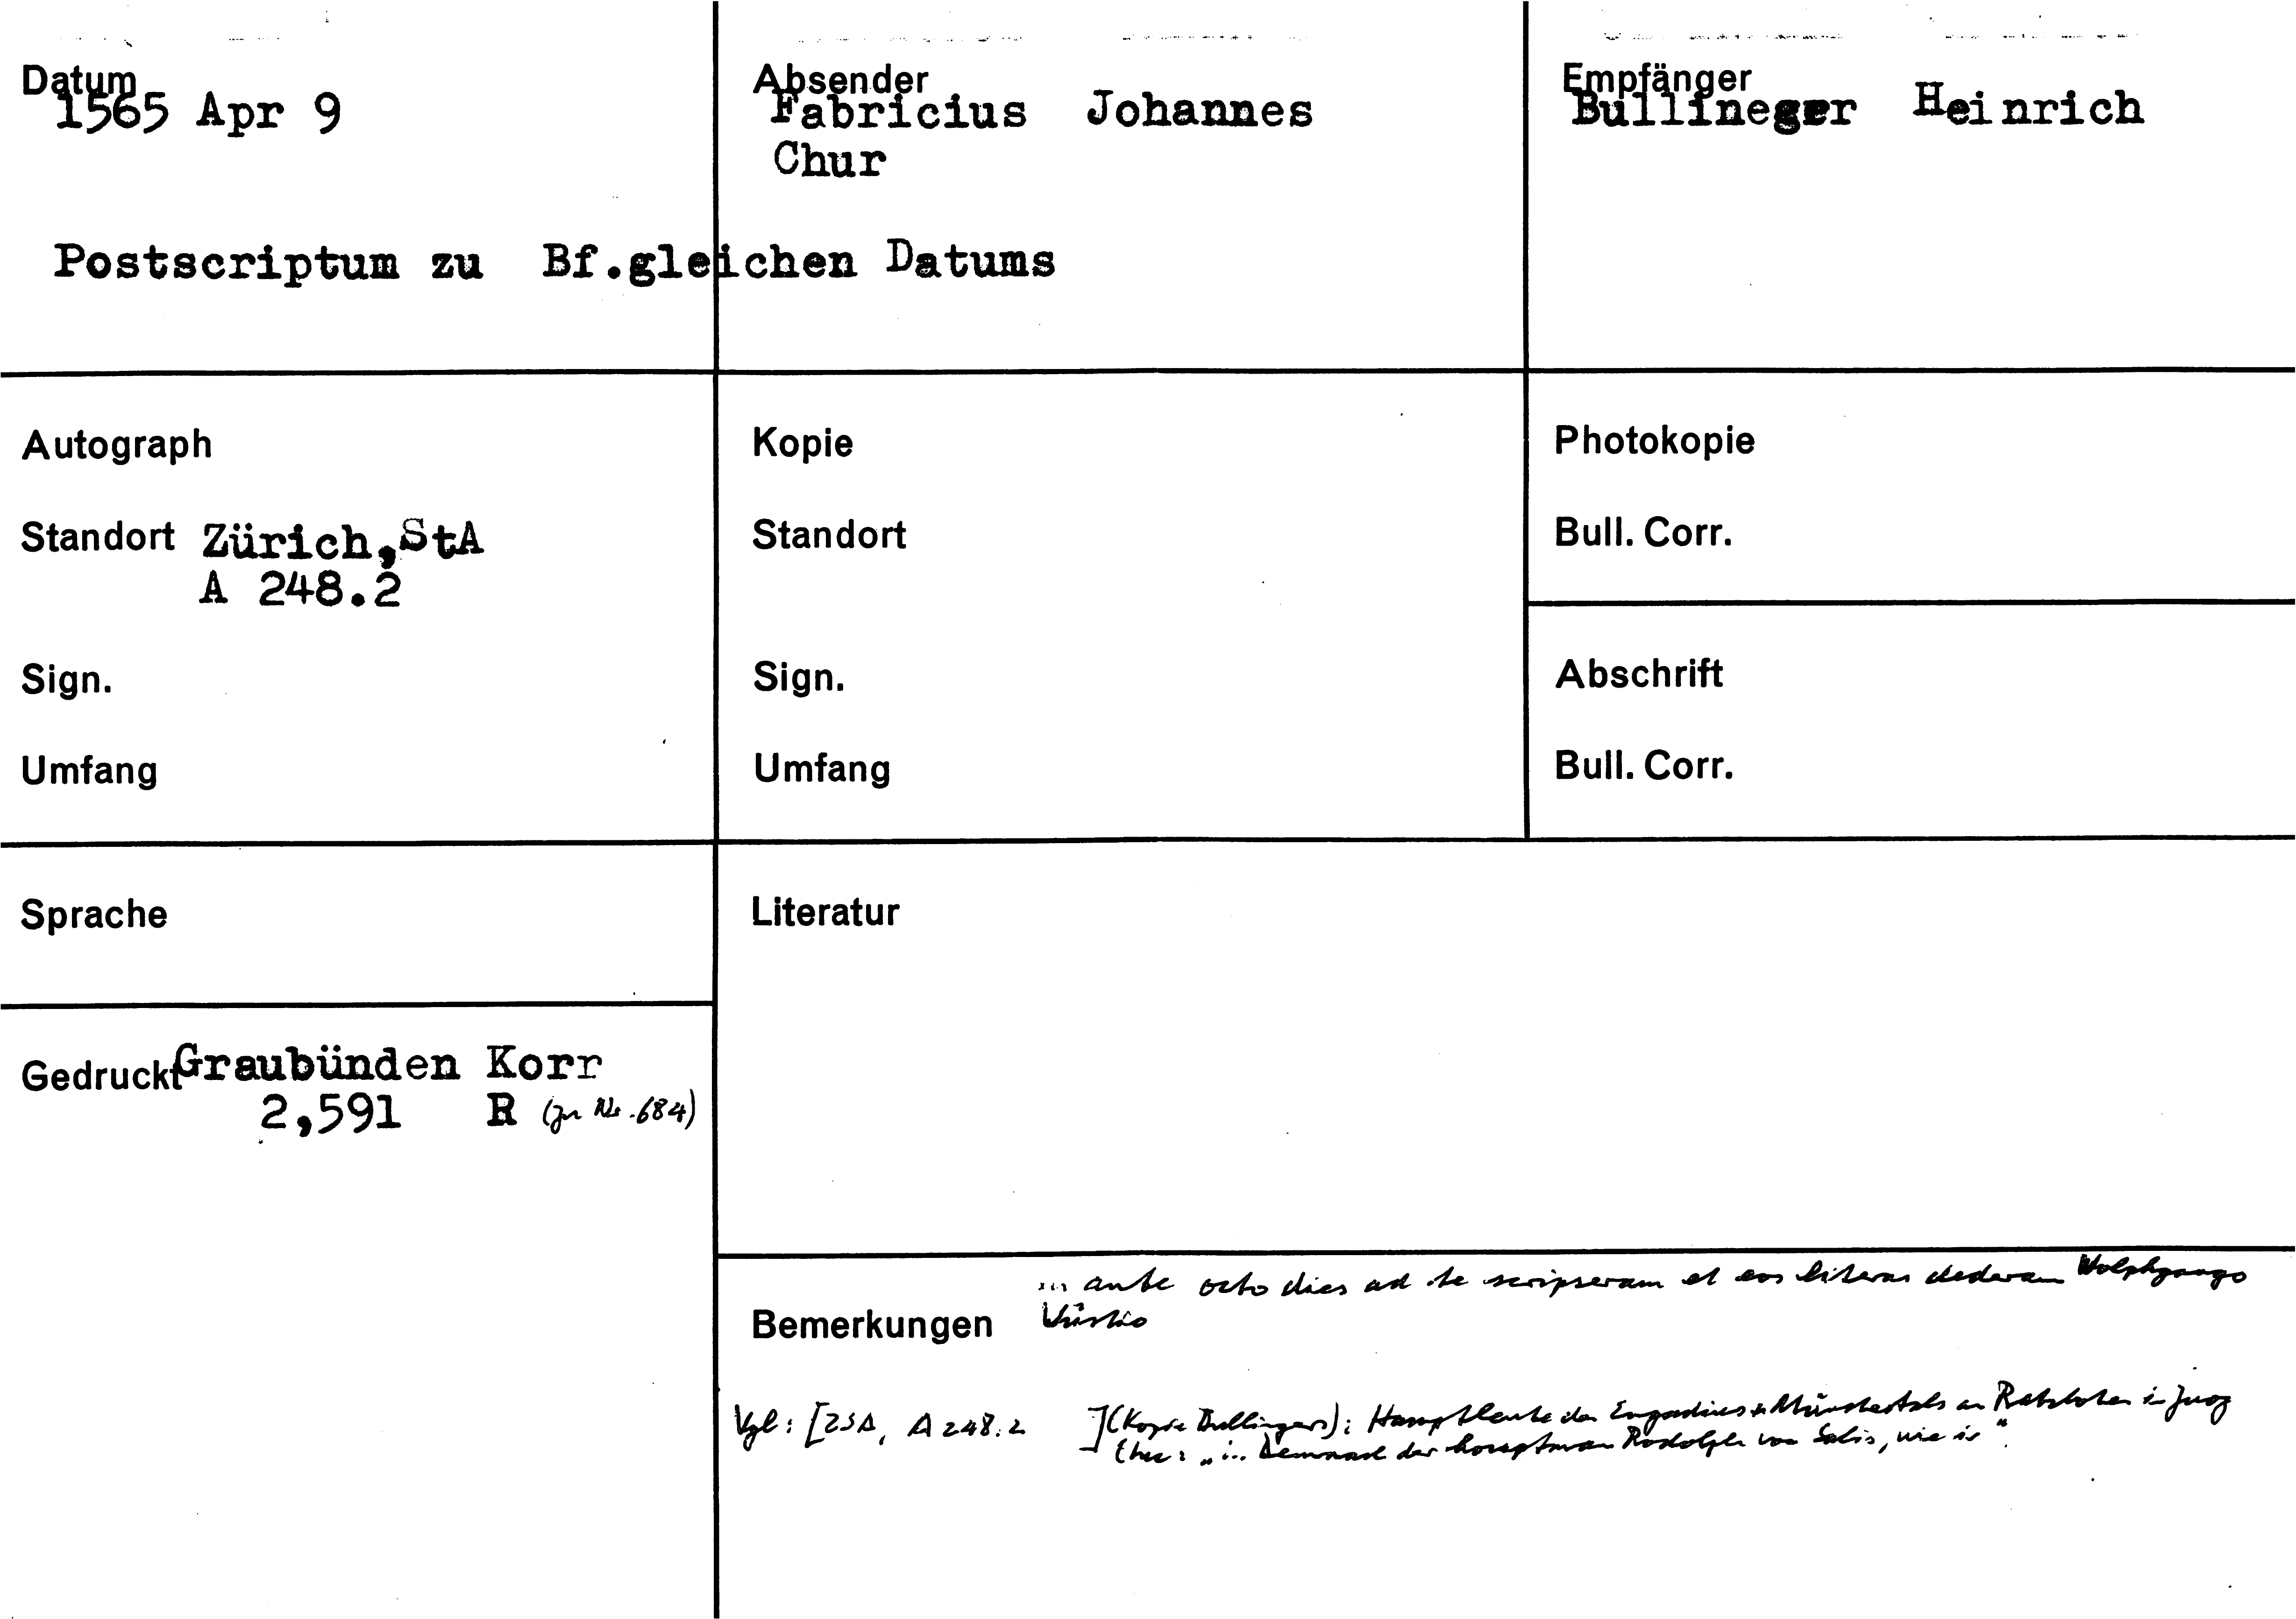 Datum
1565 Apr 9
Postscriptum zu Bf.gleichen Datums
Absender
Fabricius Johannes
Chur
Empfänger
Bullineger Heinrich
Autograph
Standort Zürich,StA
A 248.2
Sign.
Umfang
Kopie
Standort
Sign.
Umfang
Photokopie
Bull. Corr.
Abschrift
Bull. Corr.
Sprache
Literatur
Gedruckt Graubünden Korr
2,591 R (zu Nr. 684)
Bemerkungen
... ante octo dies ad te scripseram et eos literas dederam Wolphgango
Vgl: [ZSA, A 248.2 ] (Kopie Bullingers): Hauptleute des Engadins + Münstertals an Ratsboten in
"... Demnach der houptman Rodolph von Salis, wie ir".